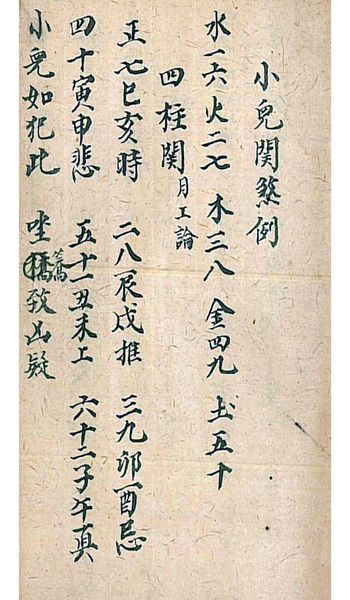 小兒関煞例
水一六火二七 木三八 金四九 土五十
四柱関 月工論
正七巳亥時 二八辰戌推 三九卯酉忌
四十寅申悲 五十一丑未上 六十二子午真
小兒如犯此 坐致凶疑